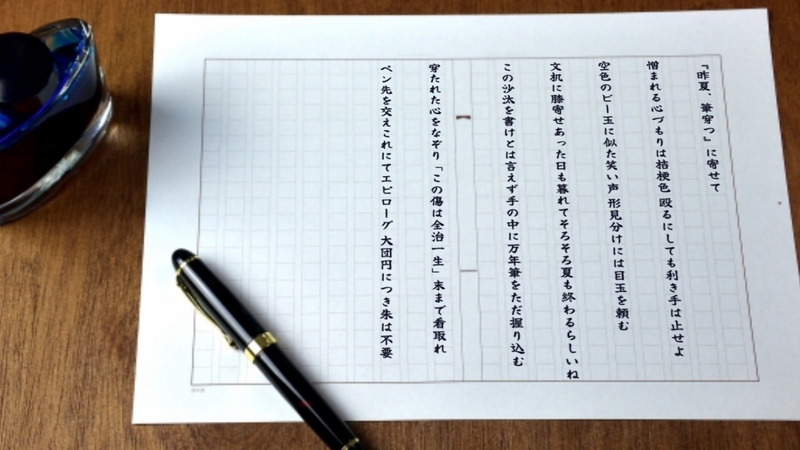 『昨夏、筆穿つ』に寄せて
憎まれる心づもりは桔梗色 殴るにしても利き手は止せよ
空色のビー玉に似た笑い声 形見分けには目玉を頼む
文机に膝寄せあった日も暮れてそろそろ夏も終わるらしいね
この沙汰を書けとは言えず手の中に万年筆をただ握り込む
穿たれた心をなぞり「この傷は全治一生」末まで看取れ
ペン先を交えこれにてエピローグ 大団円につき朱は不要